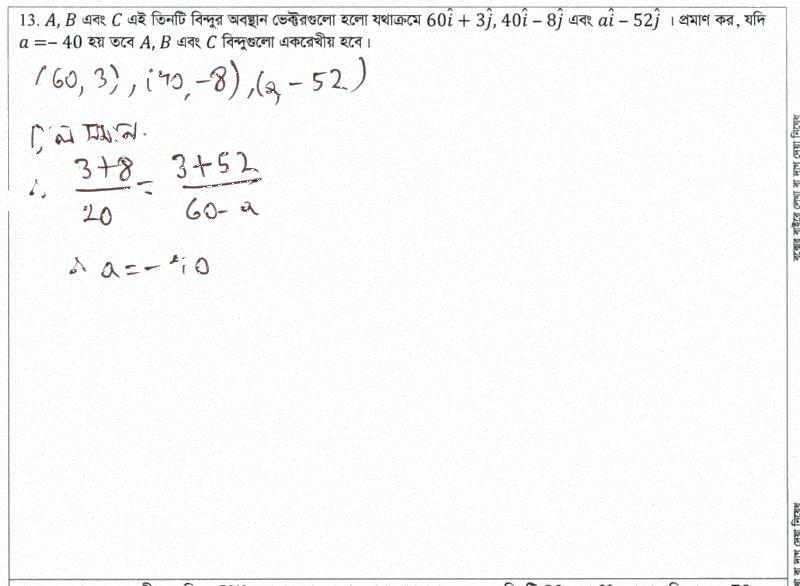 13. A, B এবং C এই তিনটি বিন্দুর অবস্থান ভেক্টরগুলো হলো যথাক্রমে 60î + 3ĵ, 40î − 8ĵ এবং aî − 52ĵ । প্রমাণ কর, যদি
a =− 40 হয় তবে A, B এবং C বিন্দুগুলো একরেখীয় হবে।
(60, 3), (40, -8), (a, - 52)
∴ (3+8)/20 = (3+52)/(60-a)
∴ a = - 40
বক্সের বাইরে লেখা বা দাগ দেয়া নিষেধ
বা দাগ দেয়া নিষেধ